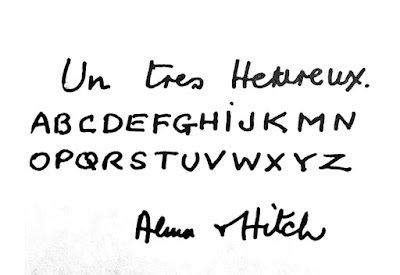 Un tres Heureux.
ABCDEFGHIJKMN
OPQRSTUVWXYZ
Alma & Hitch